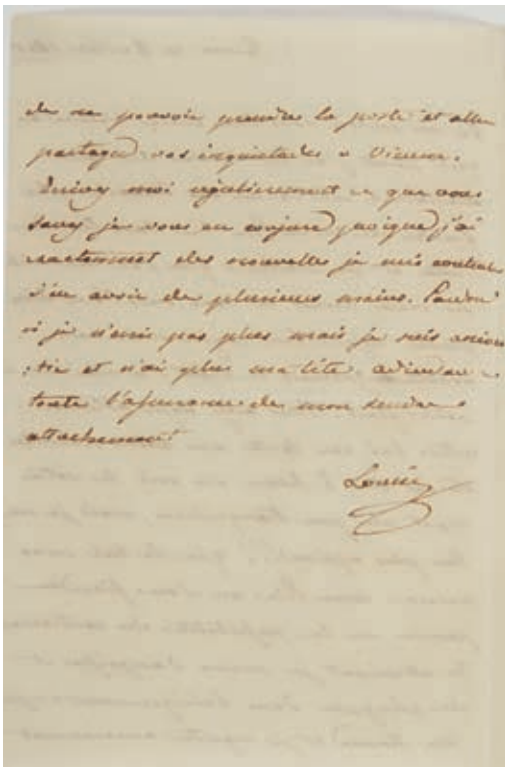 de ne pouvoir prendre la poste et aller
partager vos inquietudes a Vienne.
Ecrivez moi régulierement ce que vous
savez je vous en conjure puisque j'ai
exactement des nouvelles je suis contente
d'en avoir de plusieurs mains. Pardon
si je n'ecris pas plus mais je suis anéan
:tie et n'ai plus ma tête
toute l'assurance de mon tendre
attachement
Louise